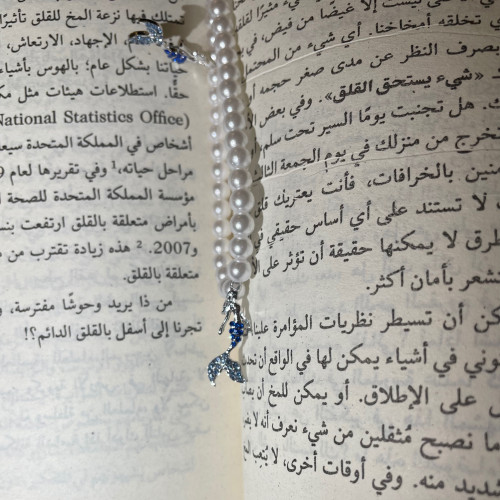 مثيرًا للقلق
ليست إلا غيضًا من فيض، في
تخلقه أمخاخنا. أي شيء من المحتمل
بصرف النظر عن مدى صغر حجمه
«شيء يستحق القلق». وفي بعض
هل تجنبت يومًا السير تحت سلم
تخرج من منزلك في يوم الجمعة الثالث
بالخرافات، فأنت يعتريك قلق
لا تستند على أي أساس حقيقي
لا يمكنها حقيقة أن تؤثر على
شعر بأمان أكثر.
كن أن تسيطر نظريات المؤامرة علينا
وني في أشياء يمكن لها في الواقع أن تحدث
على الإطلاق. أو يمكن للمخ أن
ما نصبح مُثقلين من شيء نعرف أنه لا
منه. وفي أوقات أخرى، لا يُتعِب
تمتلك فيها نزعة المخ للقلق تأثيرًا
الإجهاد، الارتعاش،
حياتنا بشكل عام؛ بالهوس بأشياء
حقًّا. استطلاعات هيئات مثل
(National Statistics Office
أشخاص في المملكة المتحدة
مراحل حياته،¹ وفي تقريرها لعام
مؤسسة المملكة المتحدة للصحة
بأمراض متعلقة بالقلق ارتفعت
و2007. ² هذه زيادة تقترب من
متعلقة بالقلق.
من ذا يريد وحوشًا مفترسة،
تجرنا إلى أسفل بالقلق الدائم؟!